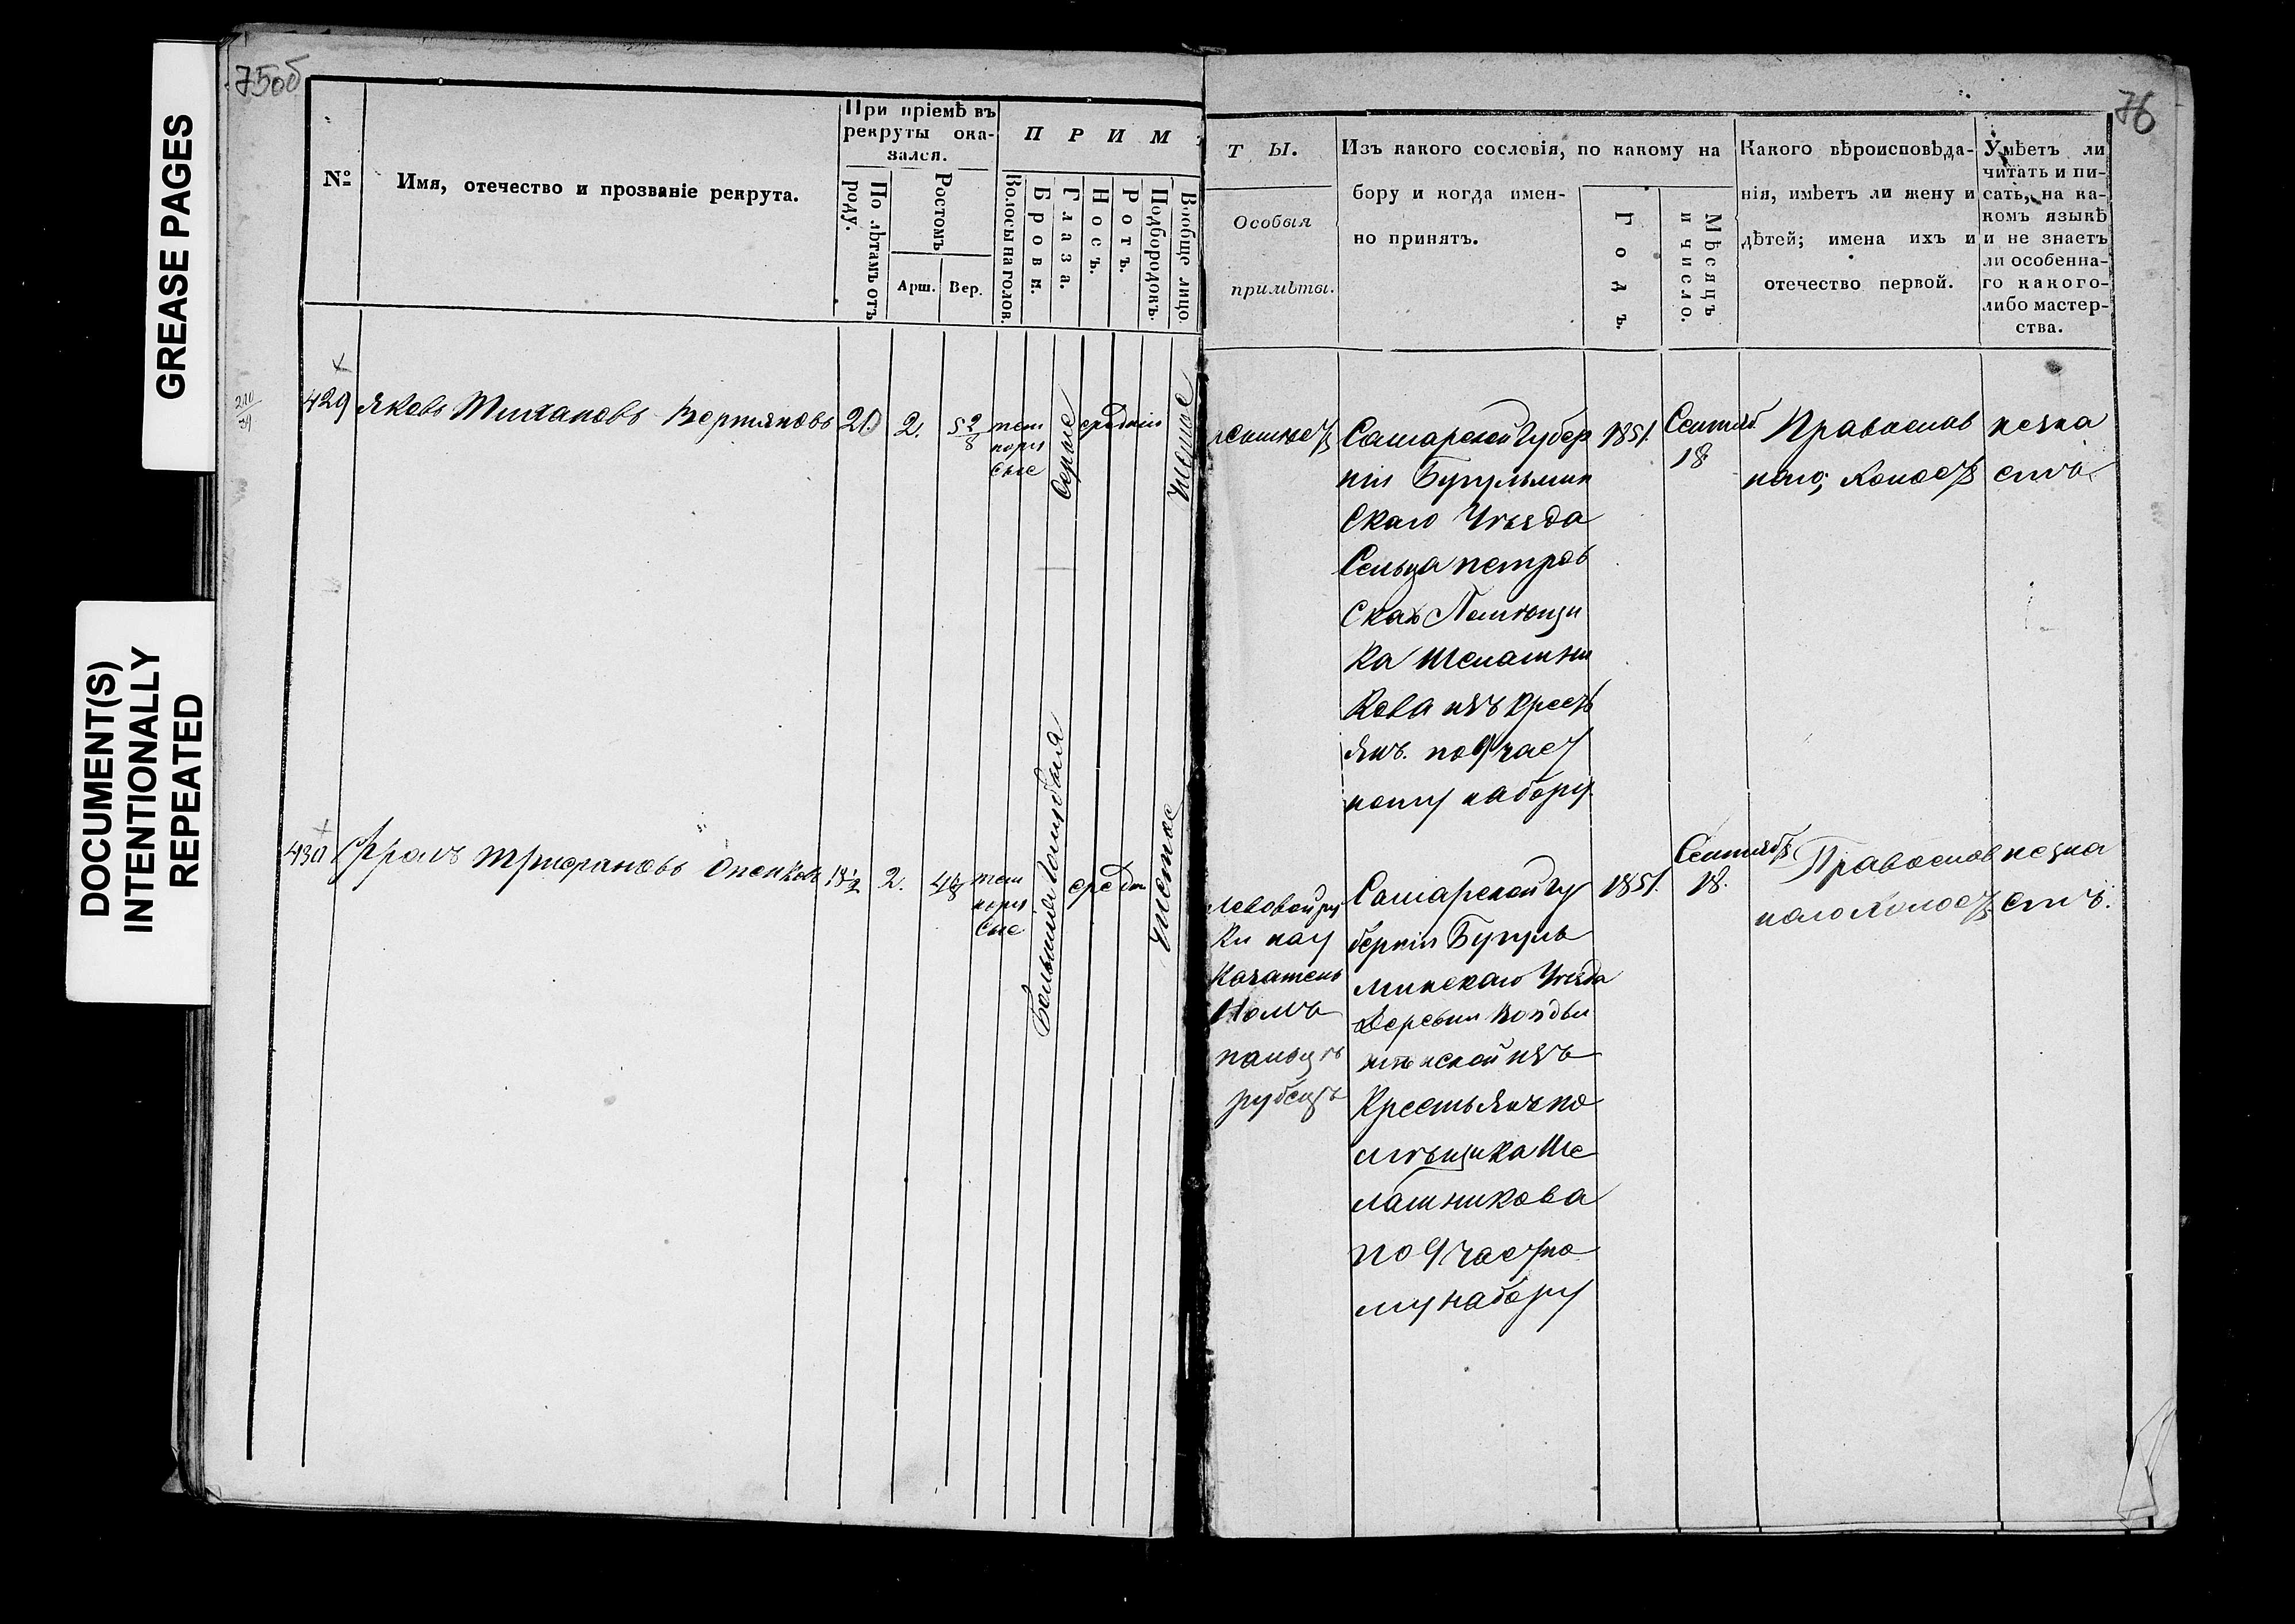 GREASE PAGES
DOCUMENT(S)
INTENTIONALLY
REPEATED
75об
76
№
Имя, отечество и прозваніе рекрута.
При пріемѣ въ
рекруты ока-
зался.
По лѣтамъ отъ
роду.
Ростомъ
Арш.
Вер.
П Р И М
Волосы на голов.
Брови.
Глаза.
Носъ.
Ротъ.
Подбородокъ.
Вообще лицо.
Т Ы.
Особыя
примѣты.
Изъ какого сословія, по какому на
бору и когда имен-
но принятъ.
Годъ.
Мѣсяцъ
и число.
Какого вѣроисповѣда-
нія, имѣетъ ли жену и
дѣтей; имена ихъ и
отечество первой.
Умѣетъ ли
читать и пи-
сать, на ка-
комъ языкѣ
и не знаетъ
ли особенна-
го какого-
либо мастер-
ства.
429
Яковъ
21
2.
5 2/8
тем
нору
сые
Серые
средніи
чистое
Самарской Губер
ніи Бугульмин
Скаго Уѣзда
Сельца петров
Скаго Помѣщи
ка Шелашни
кова изъ крест
янъ. по 9 част
ному набору
1851.
Сентяб
18
Православ
наго; холост
незна
етъ
430
Фролъ
18 1/2
2.
тем
нору
сые
средн
чистое
левой ру
ки на у
казательн
номъ
пальцѣ
рубецъ
Самарской Гу
берніи Бугуль
минскаго Уѣзда
Деревни
изъ
Крестьянъ по
мѣщика Ше
лашникова
по 9 частно
му набору
1851.
Сентябр
18.
Православ
наго холост
незна
етъ.